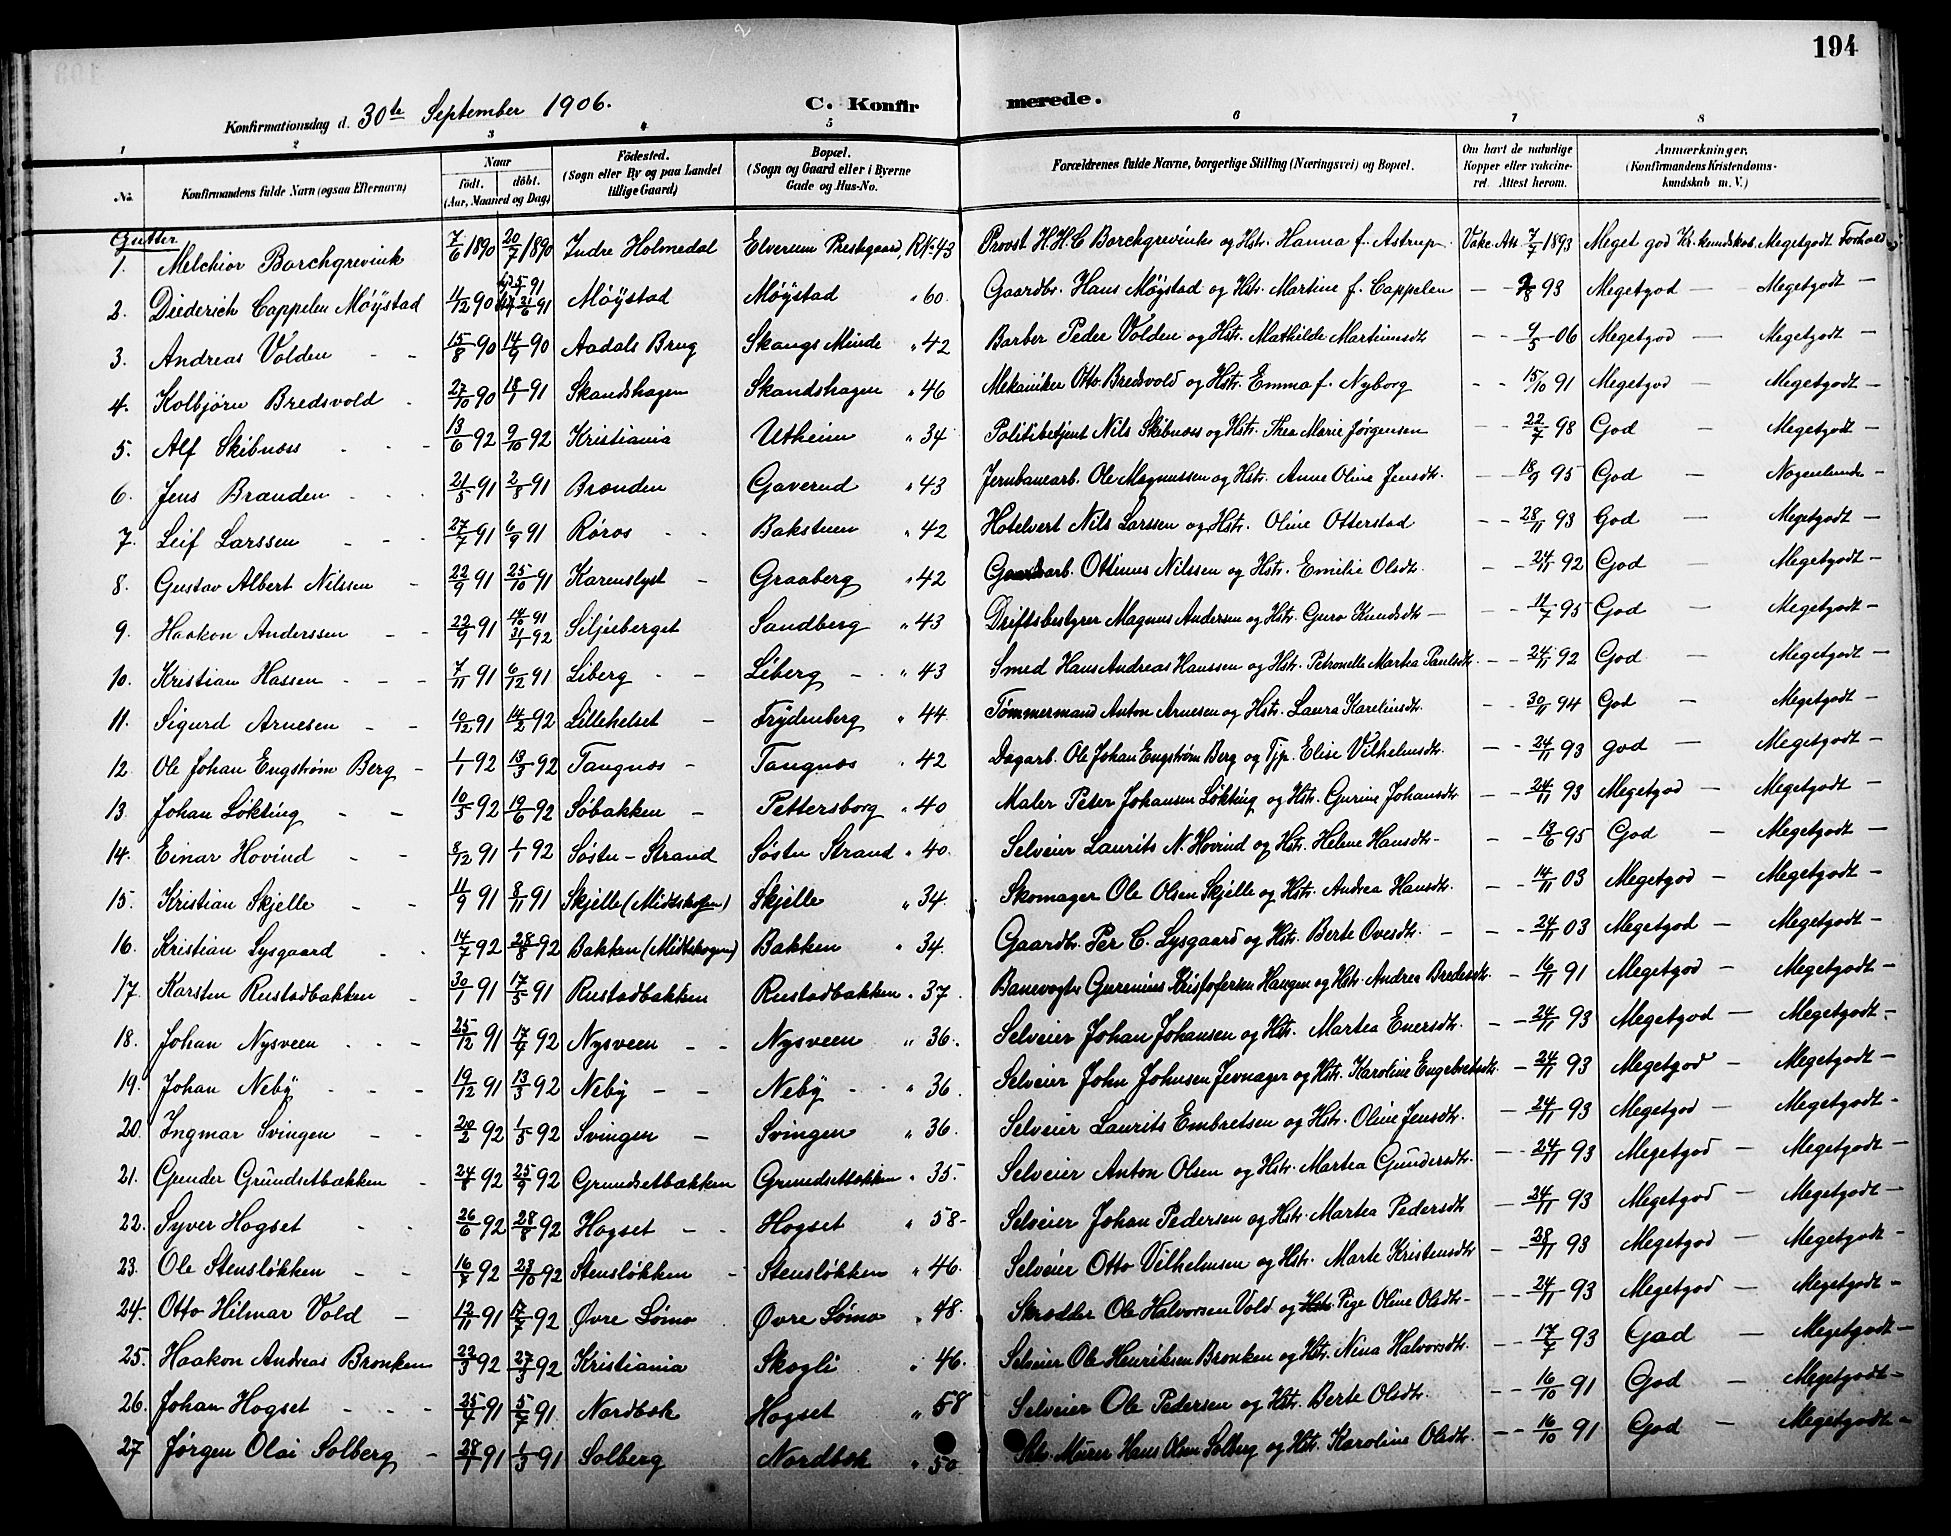 194
Konfirmationsdag d. 30te September 1906. C. Konfirmerede.
1 2 3 4 5 6 7 8
No. Konfirmandens fulde Navn (ogsaa Efternavn) Naar født. døbt. (Aar, Maaned og Dag) Fødested. (Sogn eller By og paa Landet tillige Gaard) Bopæl. (Sogn og Gaard eller i Byerne Gade og Hus-No. Forældrenes fulde Navne, borgerlige Stilling (Næringsvei) og Bopæl. Om havt de naturlige Kopper eller vakcineret. Attest herom. Anmærkninger. (Konfirmandens Kristendomskundskab m. V.)
Gutter
1. Melchior Borchgrevink 7/6 1890 20/7 1890 Indre Holmedal Elverum Prestegaard, R.No. 43 Provst H.H.C Borchgrevink og Hstr. Hanna f. Astrup Vakc. Att. 7/7 1893 Meget god Kr. kundskab Megetgodt Forhold
2. Diederich Cappelen Møystad 4/12 90 Møystad Møystad " 60 Gaardbr. Hans Møystad og Hstr. Martine f. Cappelen - - 93 Megetgod - Megetgodt -
3. Andreas Volden - - 15/8 90 14/9 90 Aadals Brug Skaugs Minde " 42 Barber Peder Volden og Hstr. Mathilde Martinusdtr. - - 9/5 06 Megetgod - Megetgodt -
4. Kolbjørn Bredsvold - 27/10 90 18/1 91 Skandshagen Skandshagen " 46 Mekaniker Otto Bredsvold og Hstr. Emma f. Nyborg - - 15/10 91 Megetgod - Megetgodt -
5. Alf Skibnæs - - - 13/6 92 9/10 92 Kristiania Utheim " 34 Politibetjent Nils Skibnæs og Hstr. Thea Marie Jørgensen - - 22/7 98 God - Megetgodt -
6. Jens Brænden - - - 21/5 91 2/8 91 Brænden Gaverud " 43 Jernbanearb. Ole Magnussen og Hstr. Anne Oline Jensdtr. - - 18/9 95 God - Nogenlunde -
7. Leif Larssen - - - 27/7 91 6/9 91 Røros - - Baksteen " 42 Hotelvert Nils Larssen og Hstr. Oline Otterstad - - 28/11 93 God - Megetgodt -
8. Gustav Albert Nilssen - 22/9 91 25/10 91 Karenslyst - Graaberg " 42 Gaardsarb. Ottinus Nilssen og Hstr. Emilie Olsdtr. - - 24/11 92 God - Megetgodt -
9. Haakon Anderssen - - 22/9 91 14/10 91 31/1 92 Siljeberget Sandberg " 43 Driftsbestyrer Magnus Andersen og Hstr. Guro Knudsdtr - - - 11/7 95 God - Megetgodt -
10. Kristian Hassen - - - 7/11 91 6/12 91 Liberg - - Liberg - " 43 Smed Hans Andreas Hanssen og Hstr. Petronelle Martea Paulsdtr. - - 24/11 92 God - Megetgodt -
11. Sigurd Arnesen - - 10/12 91 14/2 92 Lillehelset - Frydenberg " 44 Tømmermand Anton Arnesen og Hstr. Laura Karelinsdtr. - - 30/11 94 God - Megetgodt -
12. Ole Johan Engstrøm Berg - 1/1 92 13/3 92 Tangnæs - Tangnæs " 42 Dagarb. Ole Johan Engstrøm Berg og Tjp. Elise Vilhelmsdtr. - - 24/11 93 god - Megetgodt -
13. Johan Løkting - - 10/5 92 19/6 92 Søbakken - Pettersborg " 40 Maler Peter Johansen Løkting og Hstr. Gurine Johansdtr - - 24/11 93 Megetgod - Megetgodt -
14. Einar Hovind - - 8/12 91 1/1 92 Søstu - Strand Søstu Strand " 40. Selveier Laurits N. Hovind og Hstr. Helene Hansdtr - - - 13/6 95 God - Megetgodt -
15. Kristian Skjelle - - 11/9 91 8/11 91 Skjelle (Midtskogen) Skjelle " 34. Skomager Ole Olsen Skjelle og Hstr. Andrea Hansdtr. - - 14/11 03 Megetgod - Megetgodt -
16. Kristian Lysgaard - - 14/7 92 28/8 92 Bakken (Midtskogen) Bakken " 34. Gaardbr. Per C. Lysgaard og Hstr. Berte Ovesdtr. - - - 24/11 03 Megetgod - Megetgodt -
17. Karsten Rustadbakken - 30/1 91 17/5 91 Rustadbakken Rustadbakken " 37. Banevogter Gurenius Kristofersen Haugen og Hstr. Andrea Bredesdtr. - 16/11 91 Megetgod - Megetgodt -
18. Johan Nysveen - - - 25/12 91 17/4 92 Nysveen - - Nysveen " 36. Selveier Johan Johansen og Hstr. Martea Enersdtr. - - 24/11 93 Megetgod - Megetgodt -
19. Johan Neby - - - 19/12 91 13/3 92 Neby - - Neby - - " 36. Selveier John Johnsen Jevnager og Hstr. Karoline Engebretsdtr. - 24/11 93 Megetgod - Megetgodt -
20. Ingmar Svingen - - 20/2 92 1/5 92 Svingen - Svingen " 36. Selveier Laurits Embretsen og Hstr. Oline Jensdtr. - 24/11 93 Megetgod - Megetgodt -
21. Gunder Grundsetbækken - 24/8 92 25/9 92 Grundsetbækken Grundsetbækken " 35. Selveier Anton Olsen og Hstr. Martea Gundersdtr. - - 24/11 93 Megetgod - Megetgodt -
22. Syver Hogset - - 26/6 92 28/8 92 Hogset - - Hogset " 58 - Selveier Johan Pedersen og Hstr. Martea Pedersdtr - 24/11 93 Megetgod - Megetgodt -
23. Ole Stensløkken - - 16/7 92 23/10 92 Stensløkken - Stensløkken " 46. Selveier Otto Vilhelmsen og Hstr. Marte Kristensdtr - 28/11 93 Megetgod - Megetgodt -
24. Otto Hilmar Vold - 12/11 91 17/7 92 Øvre Lømo Øvre Lømo " 48. Skrædder Ole Halvorsen Vold og Pige Oline Olsdtr - - 24/11 93 Megetgod - Megetgodt -
25. Haakon Andreas Bronken 22/3 92 27/3 92 Kristiania Skogli " 46. Selveier Ole Henriksen Bronken og Hstr. Nina Halvorsdtr. - 17/7 93 God - Megetgodt -
26. Johan Hogset - - - 25/4 91 5/7 91 Nordbøk Hogset " 58 Selveier Ole Pedersen og Hstr. Berte Olsdtr. - - 16/10 91 God - Megetgodt -
27 Jørgen Olai Solberg - 28/1 91 1/3 91 Solberg Nordbøk " 50 Murer Hans Olsen Solberg og Hstr. Karoline Olsdtr. - - 16/10 91 God - Megetgodt -